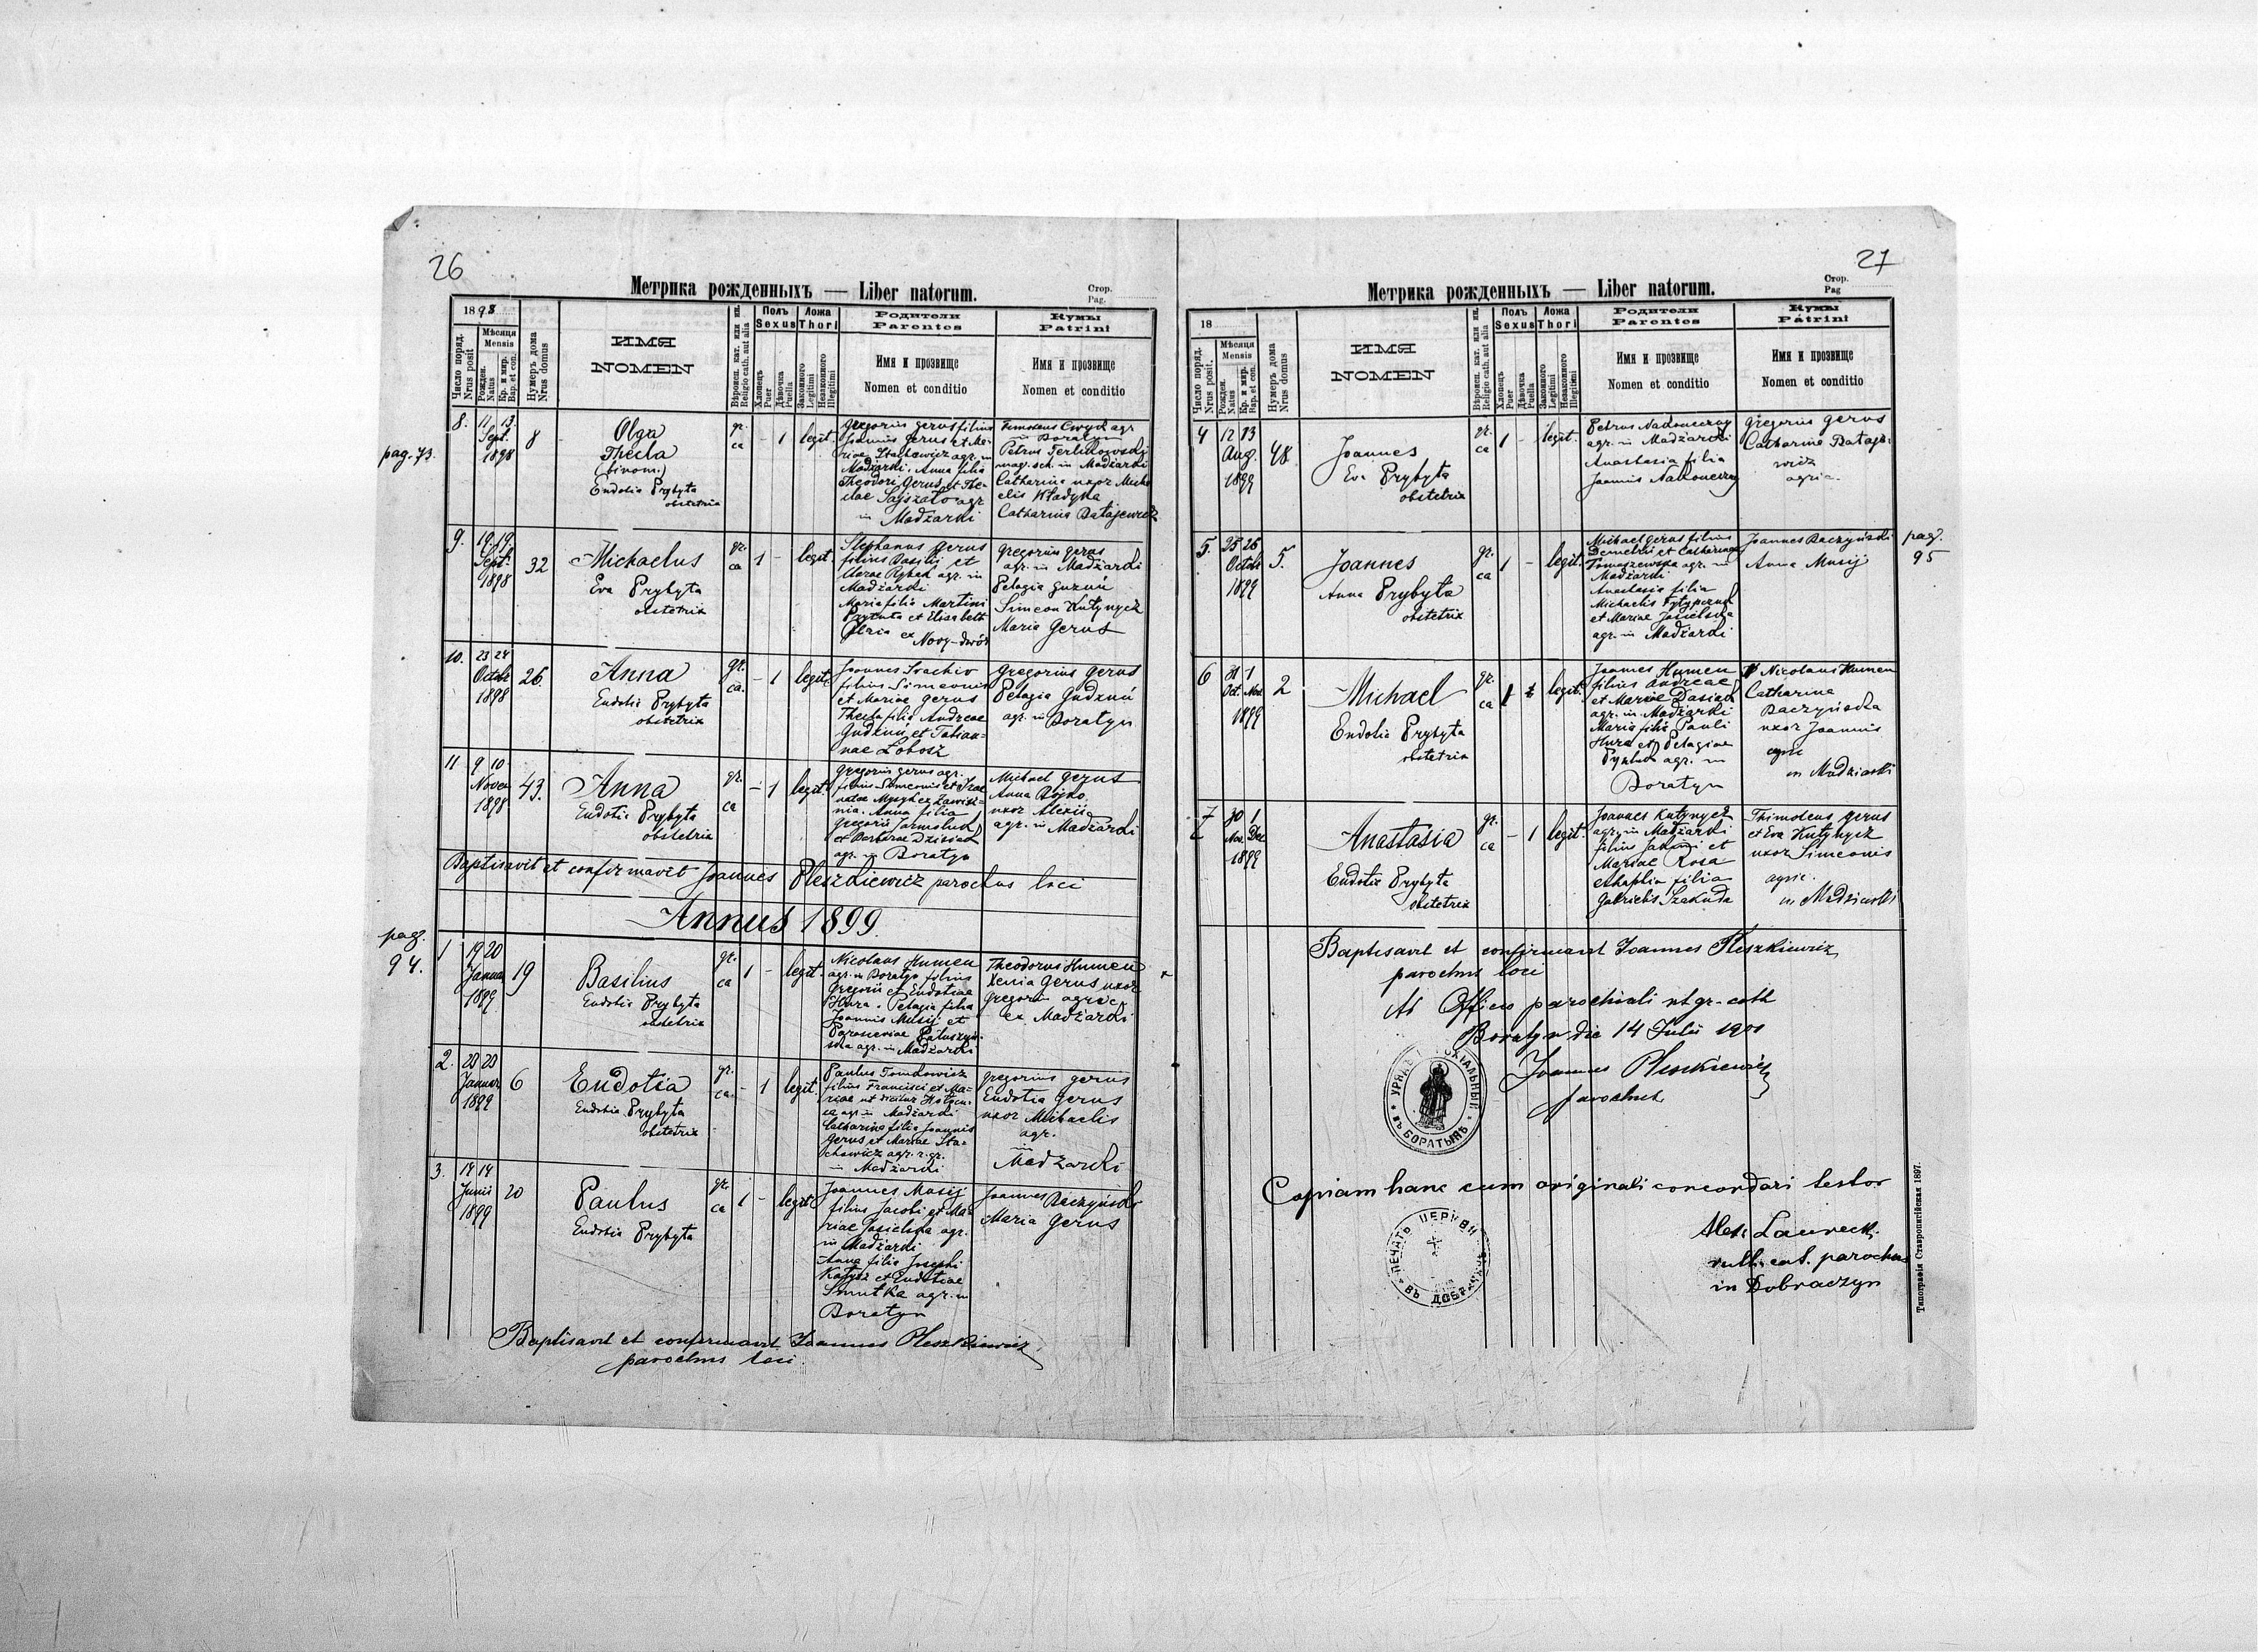 26
Метрика рожденныхъ — Liber natorum.
Стор.
Pag.
1898
Число поряд.
Nrus posit
Мѣсяця
Mensis
Рожден.
Natus
Кр. и мир.
Bap. et con.
Нумеръ дома
Nrus domus
ИМЯ
NOMEN
Вѣроисп. кат. или ин.
Religio cath. aut alia
Полъ
Sexus
Хлопець
Puer
Дѣвочка
Puella
Ложа
Thori
Законного
Legitimi
Незаконного
Illegitimi
Родители
Parentes
Имя и прозвище
Nomen et conditio
Кумы
Patrini
Имя и прозвище
Nomen et conditio
pag. 73.
8. 11 13 Sept. 1898
8
Olga
Thecla
(binom.)
Eudotia Prybyta
obstetrix
gr. ca
- 1 legit.
Gregorius Gerus filius
Joannis Gerus et Ma-
riae Stachewicz agr. in
Madżarki. Anna filia
Theodori Gerus et The-
clae agr.
in Madżarki
Timoteus agr
in Boratyn
Petrus
mag. sch. in Madżarki
Catharina uxor Micha
elis Władyka
Catharina Batajewicz
9. 19 19 Sept. 1898
32
Michaelus
Eva Prybyta
obstetrix
gr. ca
1 - legit.
Stephanus Gerus
filius Basilii et
agr. in
Madżarki
Maria filia Martini
et Elisabeth
ex Nowy-dwór
Gregorius Gerus
agr. in Madżarki
Pelagia
Simeon Kutynycz
Maria Gerus
10. 23 24 Octob 1898
26
Anna
Eudotia Prybyta
obstetrix
gr. ca.
- 1 legit.
Joannes
filius Simeonis
et Mariae Gerus
Thecla filia Andreae
Gudzuń et Tatian-
nae Łobosz
Gregorius Gerus
Pelagia Gudzuń
agr. in Boratyn
11 9 10 Novem 1898
43.
Anna
Eudotia Prybyta
obstetrix
gr. ca
- 1 legit.
Gregorius Gerus agr.
filius Simeonis et
nia. Anna filia
Gregorii Jarmoluk
et Barbarae
agr. in Boratyn
Michael Gerus
Anna Bojko
uxor Alexii
agr. in Madżarki
Baptisavit et confirmavit Joannes Pleszkiewicz parochus loci
Annus 1899
pag.
94.
1 19 20 Januar 1899
19
Basilius
Eudotia Prybyta
obstetrix
gr. ca
1 - legit.
Nicolaus Humen
agr. in Boratyn filius
Gregorii et Eudotiae
Hura. Pelagia filia
Joannis Musij et
Parasceviae
agr. in Madżarki
Theodorus Humen
Xenia Gerus uxor
Gregorii agric.
ex Madżarki
2. 28 28 Januar 1899
6
Eudotia
Eudotia Prybyta
obstetrix
gr. ca.
- 1 legit.
Paulus Tomkowicz
filius Francisci et Ma-
riae
agr. in Madżarki
Catharina filia Joannis
Gerus et Mariae Sta-
chewicz agr. r. gr.
in Madżarki
Gregorius Gerus
Eudotia Gerus
uxor Michaelis
agr.
in
Madżarki
3. 14 14 Junii 1899
20
Paulus
Eudotia Prybyta
gr. ca
1 - legit.
Joannes Musij
filius Jacobi et Ma-
riae Jasielska agr.
in Madżarki
Anna filia Josephi
et Eudotiae
Smutka agr. in
Boratyn
Joannes Raczyński
Maria Gerus
Baptisavit et confirmavit Joannes Pleszkiewicz
parochus loci.
27
Метрика рожденныхъ — Liber natorum.
Стор.
Pag
18
Число поряд.
Nrus posit.
Мѣсяця
Mensis
Рожден.
Natus
Кр. и мир.
Bap. et con.
Нумеръ дома
Nrus domus
ИМЯ
NOMEN
Вѣроисп. кат. или ин.
Religio cath. aut alia
Полъ
Sexus
Хлопець
Puer
Дѣвочка
Puella
Ложа
Thori
Законного
Legitimi
Незаконного
Illegitimi
Родители
Parentes
Имя и прозвище
Nomen et conditio
Кумы
Patrini
Имя и прозвище
Nomen et conditio
4 12 13 Aug. 1899
48
Joannes
Eva Prybyta
obstetrix
gr. ca
1 - legit.
Petrus Nakoneczny
agr. in Madżarki
Anastasia filia
Joannis Nakoneczny
Gregorius Gerus
Catharina Bataje-
wicz
agric.
pag.
95
5. 25 26 Octob 1899
5.
Joannes
Anna Prybyta
obstetrix
gr. ca
1 - legit.
Michael Gerus filius
Demetrii et Catharinae
Tomaszewska agr. in
Madżarki
Anastasia filia
Michaelis
et Mariae Jasielska
agr. in Madżarki
Joannes Raczyński
Anna Musij
6 31 1 Oct. Nov. 1899
2
Michael
Eudotia Prybyta
obstetrix
gr. ca
1 legit.
Joannes Humen
filius Andreae
et Mariae Dasiuk
agr. in Madżarki
Maria filia Pauli
Hura et Pelagiae
agr. in
Boratyn
Nicolaus Humen
Catharina
Raczyńska
uxor Joannis
agric
in Madżiarki
7 30 1 Nov. Dec 1899
Anastasia
Eudotia Prybyta
obstetrix
gr. ca
- 1 legit.
Joannes Kutynycz
agr. in Madżarki
filius et
Mariae Rosa
Ahaphia filia
Gabrielis Szakuda
Thimoteus Gerus
et Eva Kutynycz
uxor Simeonis
agric.
in Madziarki
Baptisavit et confirmavit Joannes Pleszkiewicz
parochus loci
Ab Officio parochiali rit gr. cath
Boratyn die 14 Julii 1901
Joannes Pleszkiewicz
parochus
ВЪ БОРАТЫНѢ
Copiam hanc cum originali concordari testor
Alex. Laurecki
ritt. cat. parochus
in Dobraczyn
ПЕЧАТЬ ЦЕРКВИ
Типографія Ставропигійская 1897.